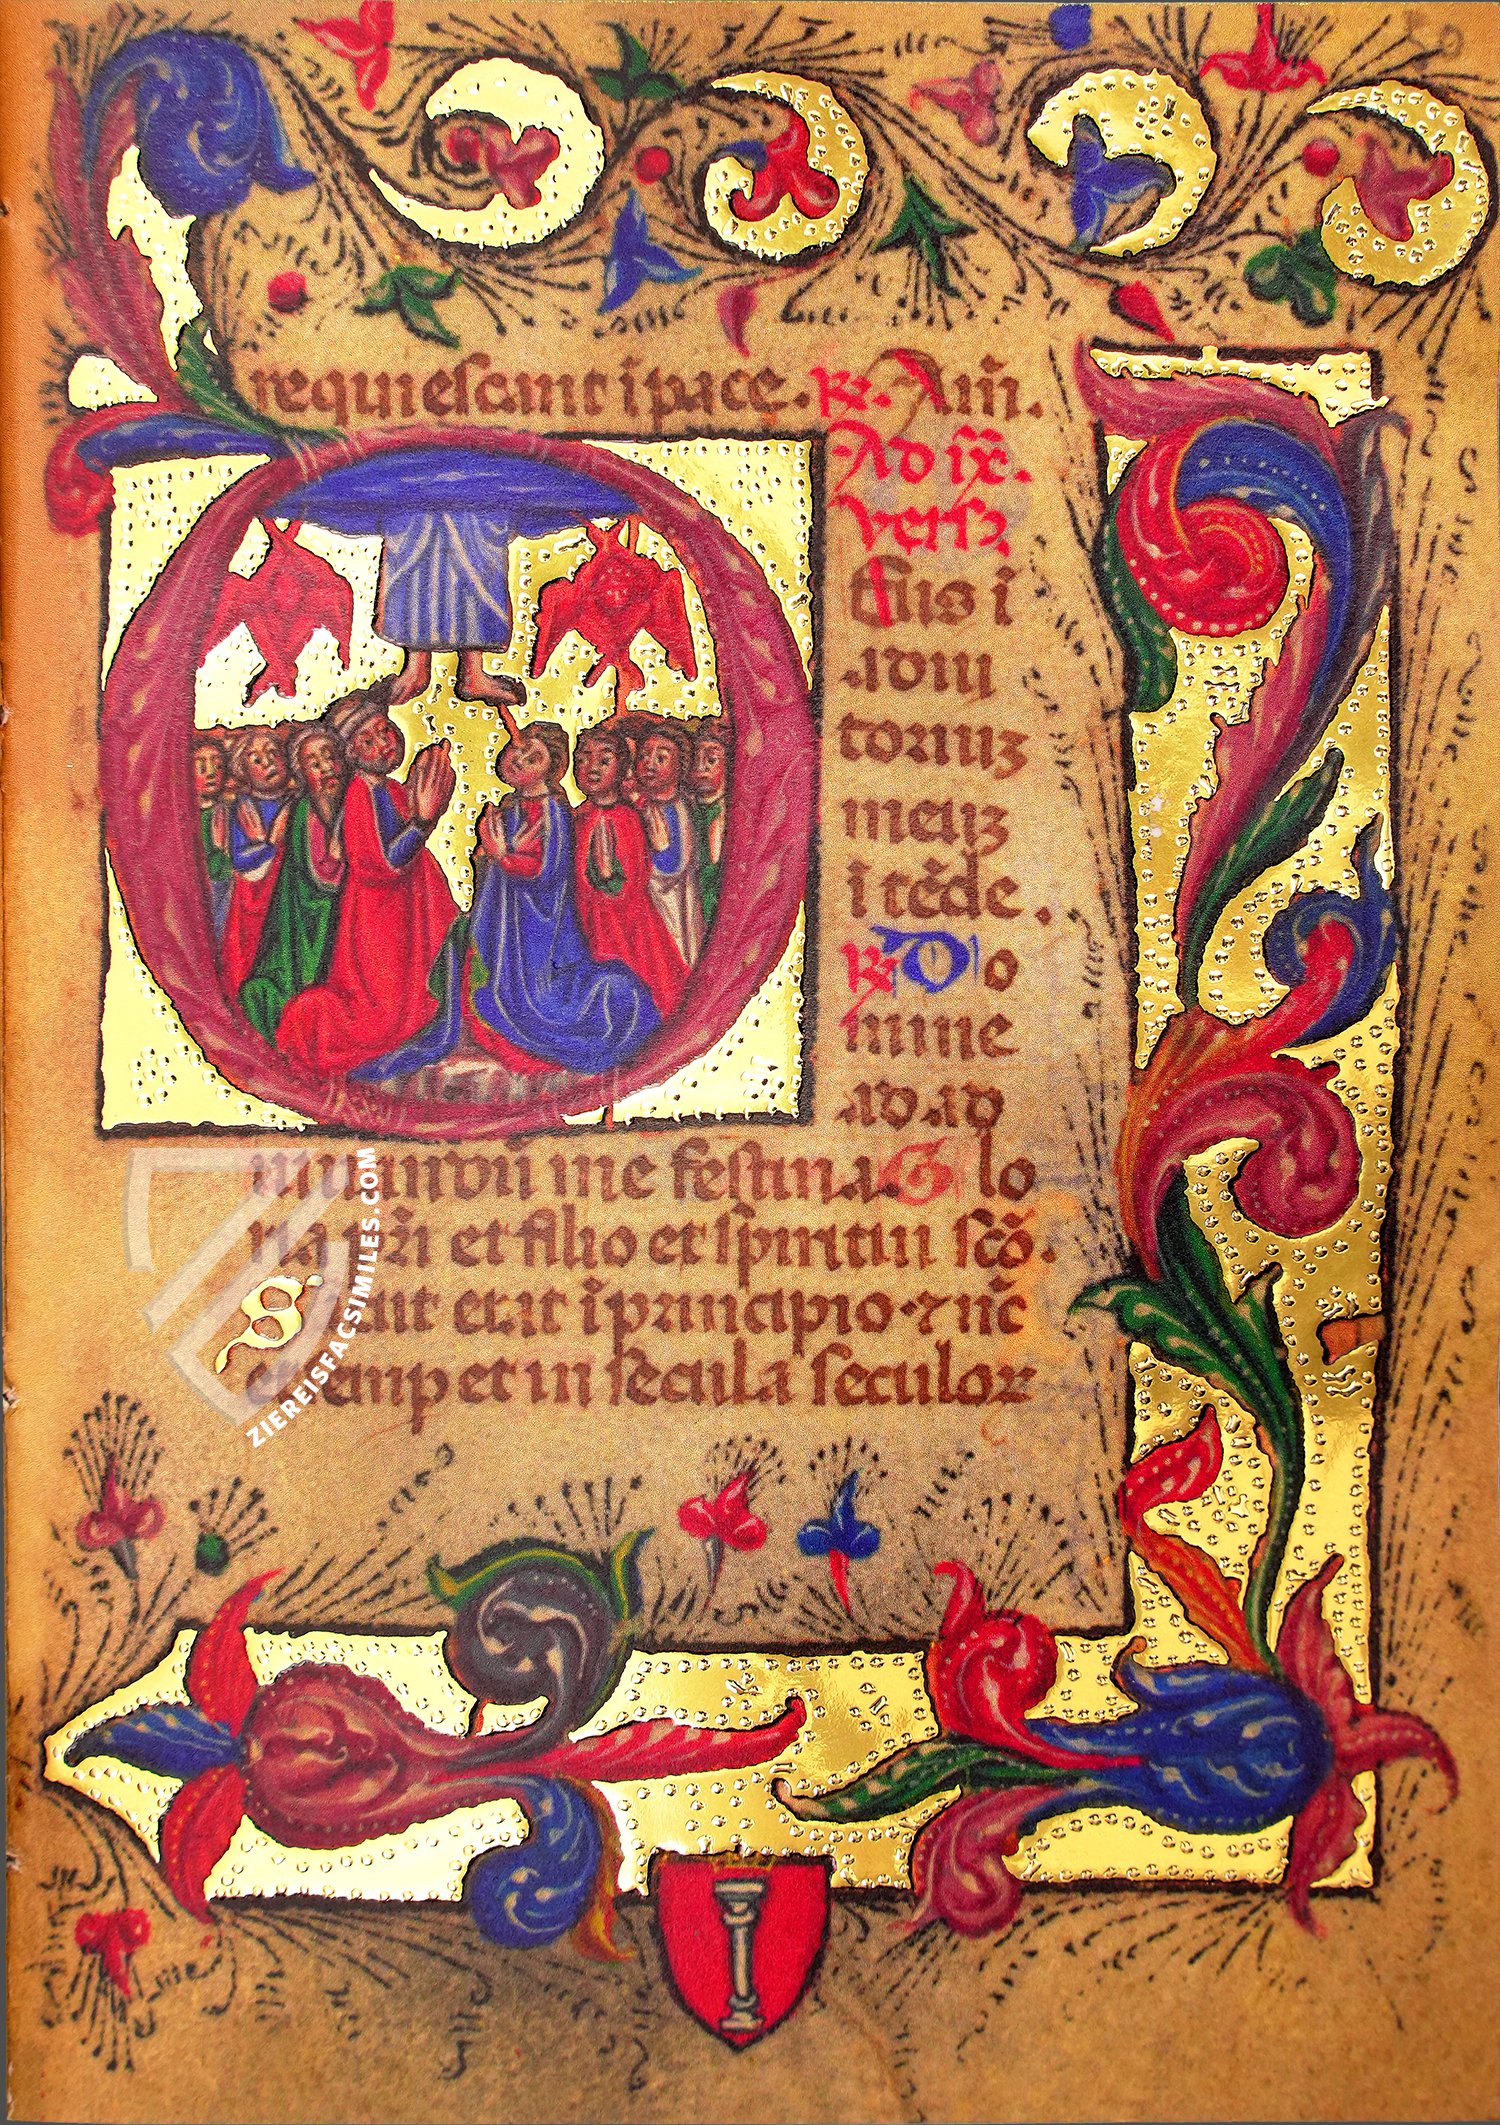 requiescant i pace. R. Am̃.
Ad ix.
vers.
Eus i
adiu
toriuʒ
meuʒ
i tẽde.
R. Do
mine
ad ad
iuuandũ me festina. Glo
ria pr̃i et filio et spiritui scõ.
Sicut erat ĩ principio. ⁊ nũc
et semp et in secula seculoꝝ
ZIEREISFACSIMILES.COM